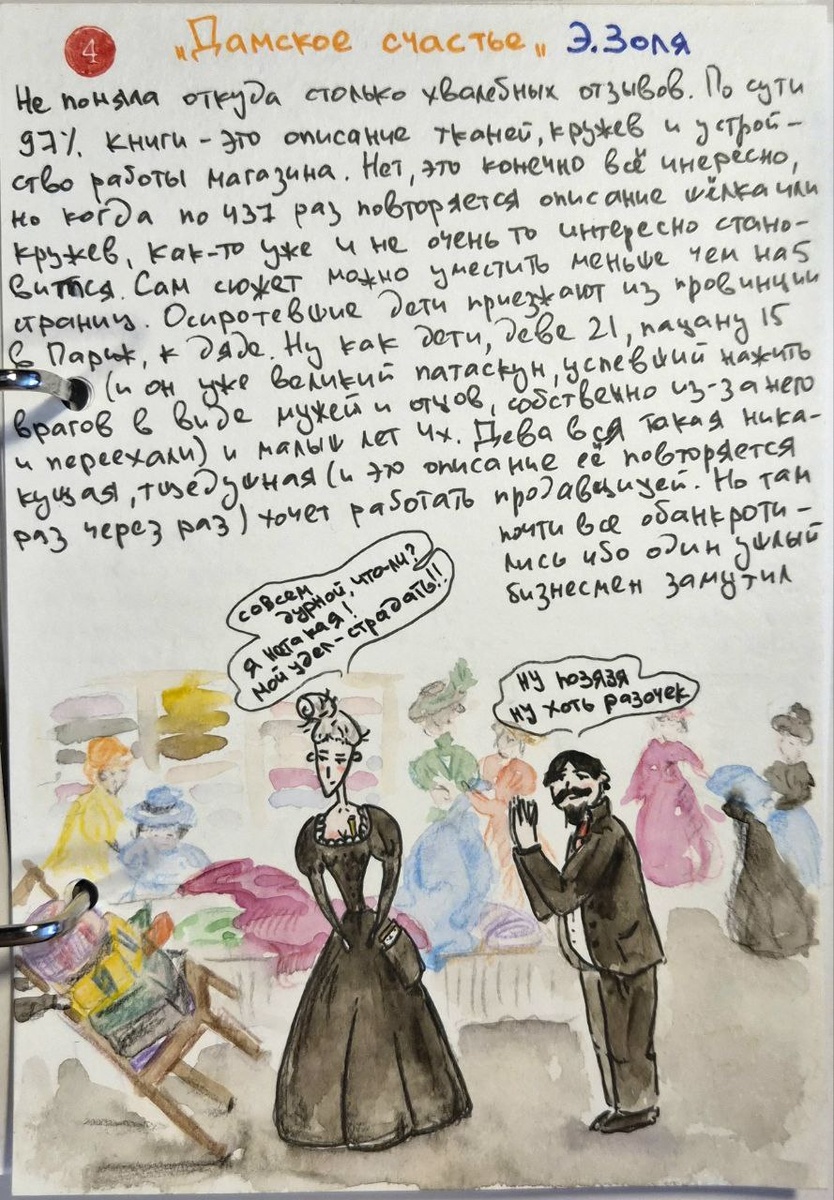 4
„Дамское счастье„ Э.Золя
Не поняла откуда столько хвалебных отзывов. По сути
97% книги - это описание тканей, кружев и устрой-
ство работы магазина. Нет, это конечно всё инересно,
но когда по 437 раз повторяется описание шёлка или
кружев, как-то уже и не очень то интересно стано-
вится. Сам сюжет можно уместить меньше чем на 5
страниц. Осиротевшие дети приезжают из провинции
в Париж, к дяде. Ну как дети, деве 21, пацану 15
(и он уже великий патаскун, успевший нажить
врагов в виде мужей и отцов, собственно из-за него
и переехали) и малыш лет 4х. Дева вся такая ника-
кущая, тщедушная (и это описание её повторяется
раз через раз) хочет работать продавщицей. Но там
почти все обанкроти-
лись ибо один ушлый
бизнесмен замутил
совсем
дурной, что-ли?
я не такая!
мой удел-страдать!!
ну позязя
ну хоть разочек